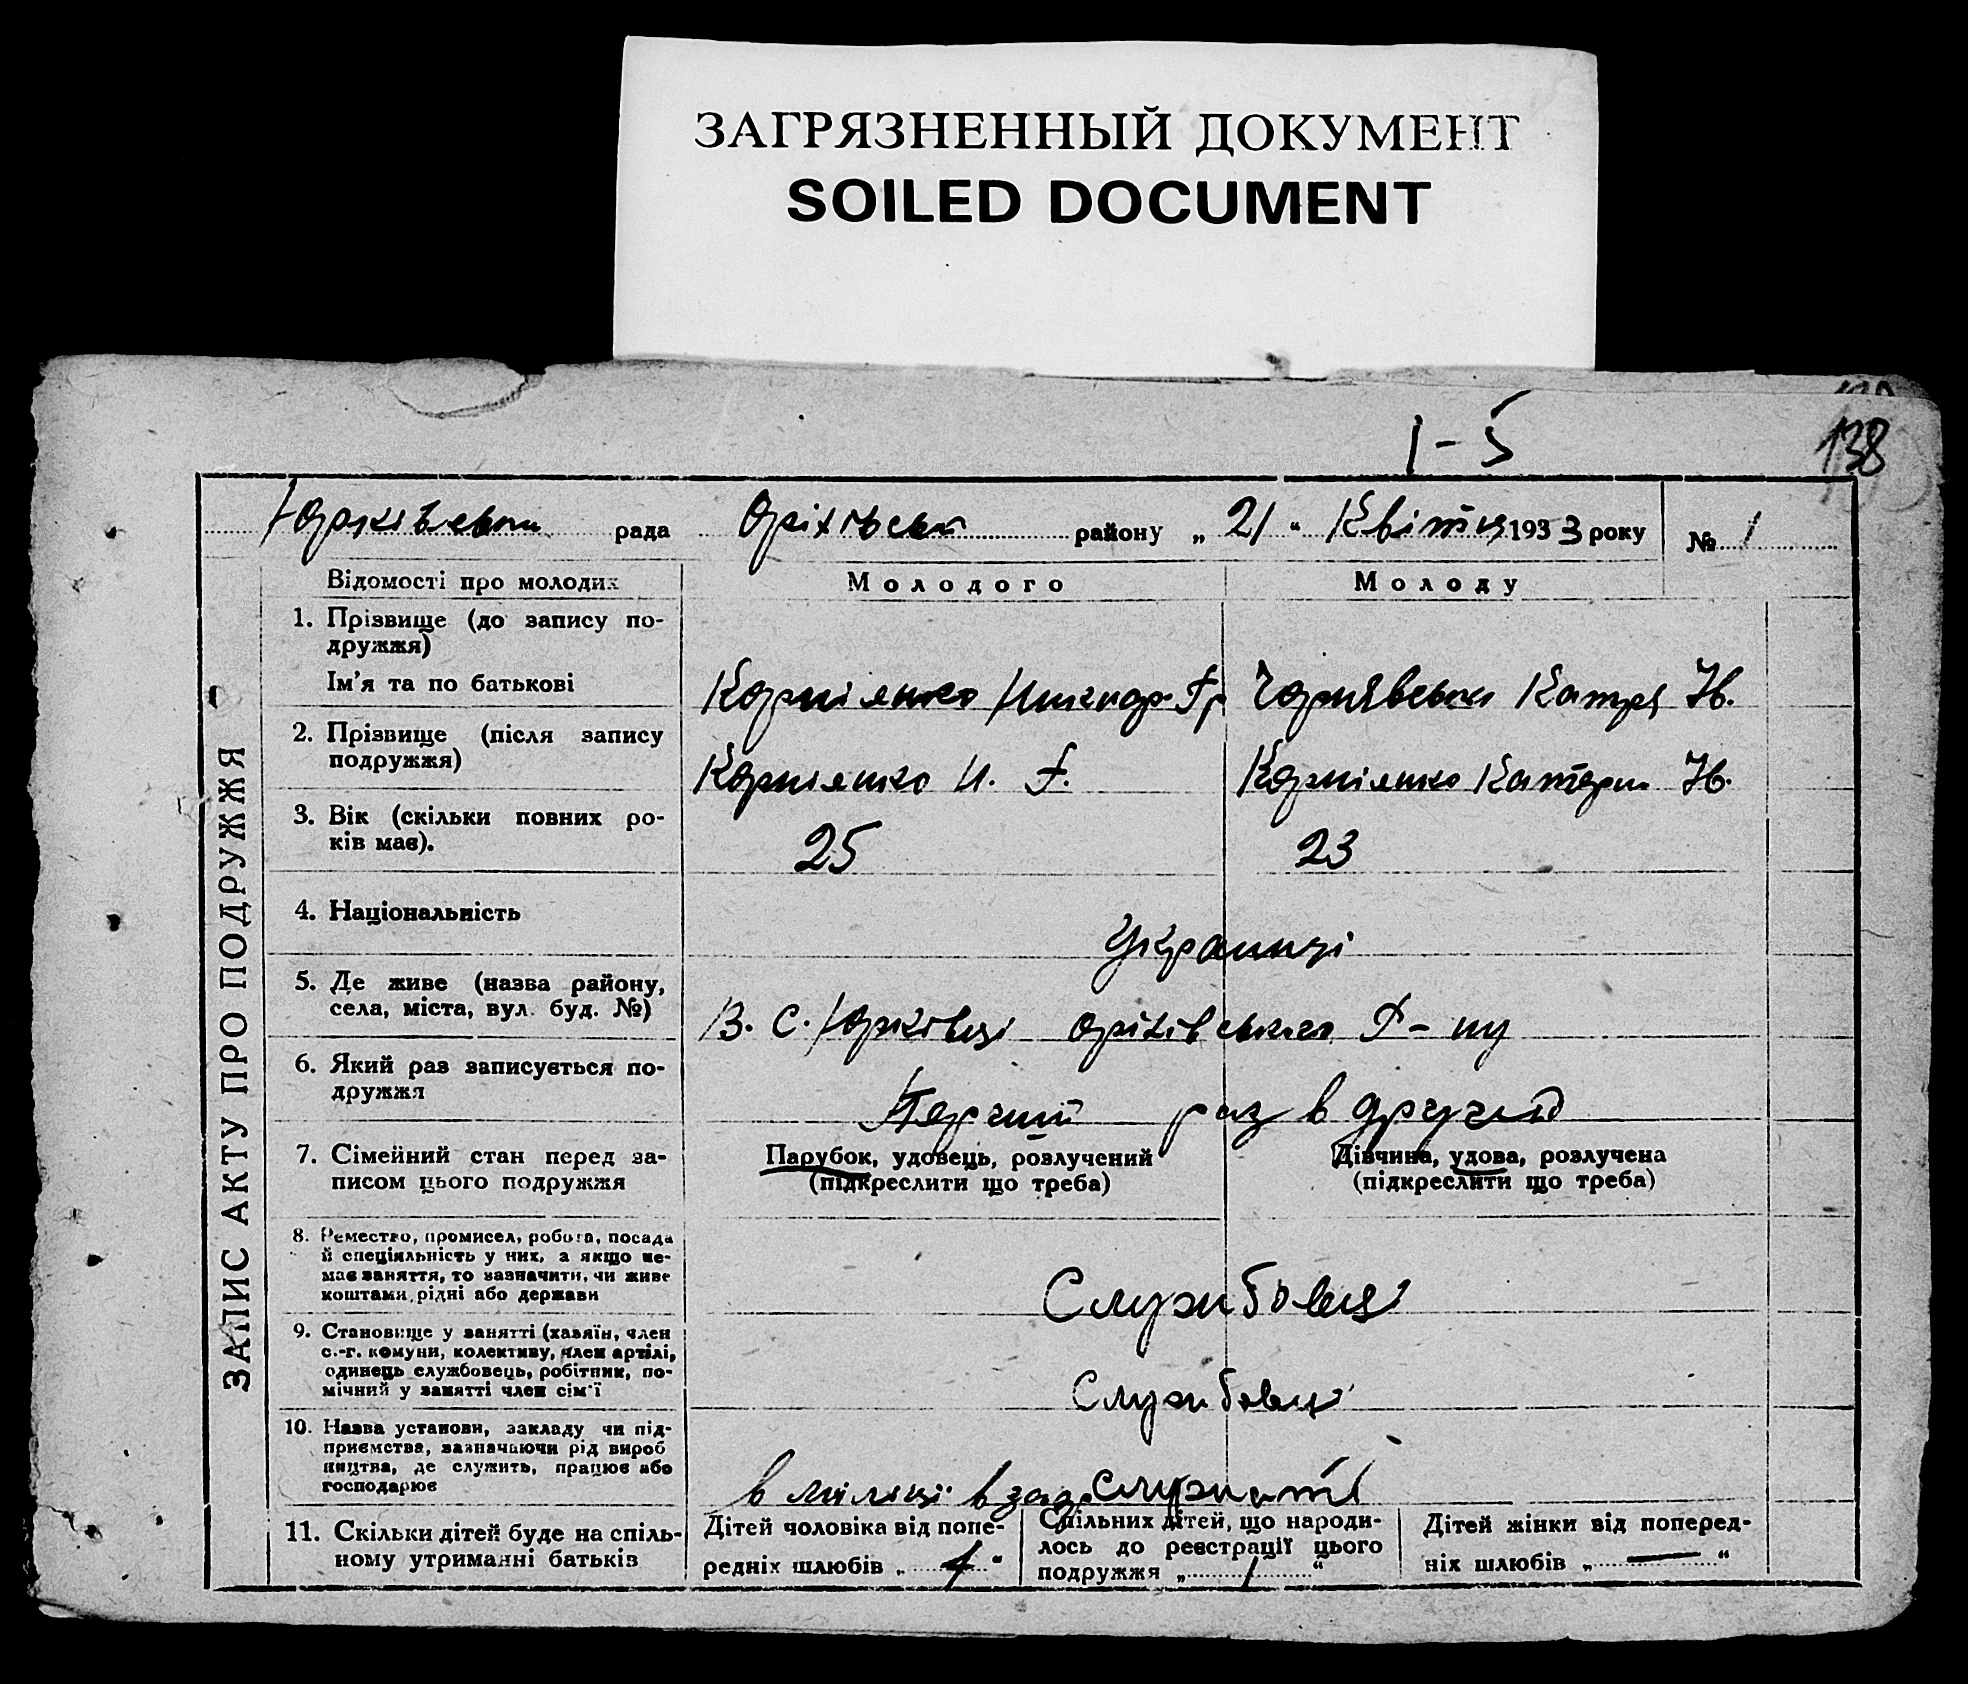 ЗАГРЯЗНЕННЫЙ ДОКУМЕНТ
SOILED DOCUMENT
1-5
138
Юрківська рада Оріхівськ району „21“ Квітня 1933 року № 1
Відомості про молодих Молодого Молоду
1. Прізвище (до запису по-
дружжя)
Ім'я та по батькові
Корніянко Никнор Гр Чорнявська Катря Ів.
2. Прізвище (після запису
подружжя)
Корніянко Н. Г. Корніянко Катерин Ів.
3. Вік (скільки повних ро-
ків має).
25 23
4. Національність
Українці
5. Де живе (назва району,
села, міста, вул. буд. №)
В. с. Юрківці Оріхівського Р-ну
6. Який раз записується по-
дружжя
Перший раз в другий
7. Сімейний стан перед за-
писом цього подружжя
Парубок, удовець, розлучений
(підкреслити що треба)
Дівчина, удова, розлучена
(підкреслити що треба)
8. Ремество, промисел, робота, посада
й спеціяльність у них, а якщо не-
має заняття, то зазначити, чи живе
коштами рідні або держави
Службовці
9. Становище у занятті (хазяїн, член
с.-г. комуни, колективу, член артілі,
одинець службовець, робітник, по-
мічний у занятті член сім'ї
Службовці
10. Назва установи, закладу чи під-
приємства, зазначаючи рід вироб
ництва, де служить, працює або
господарює
в міліці в
11. Скільки дітей буде на спіль-
ному утриманні батьків
Дітей чоловіка від попе-
редніх шлюбів „ “
Спільних дітей, що народи-
лось до реєстрації цього
подружжя „ 1 “
Дітей жінки від поперед-
ніх шлюбів „ — “
ЗАПИС АКТУ ПРО ПОДРУЖЖЯ